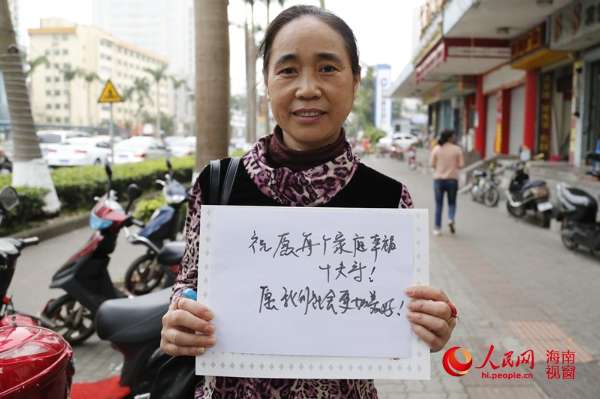 祝愿每个家庭幸福
愿我们社会更加美好!
人民网
hi.people.cn
海南
视窗